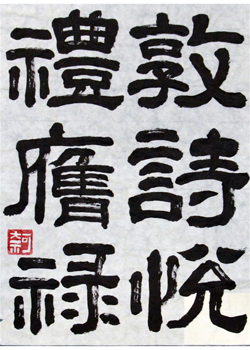 敦詩悦
禮膺禄